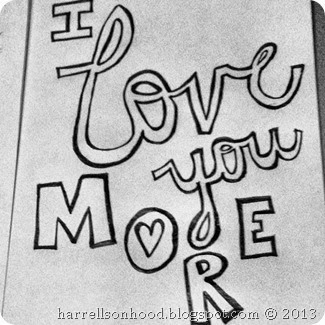 I
love
you
MORE
harrellsonhood.blogspot.com © 2013